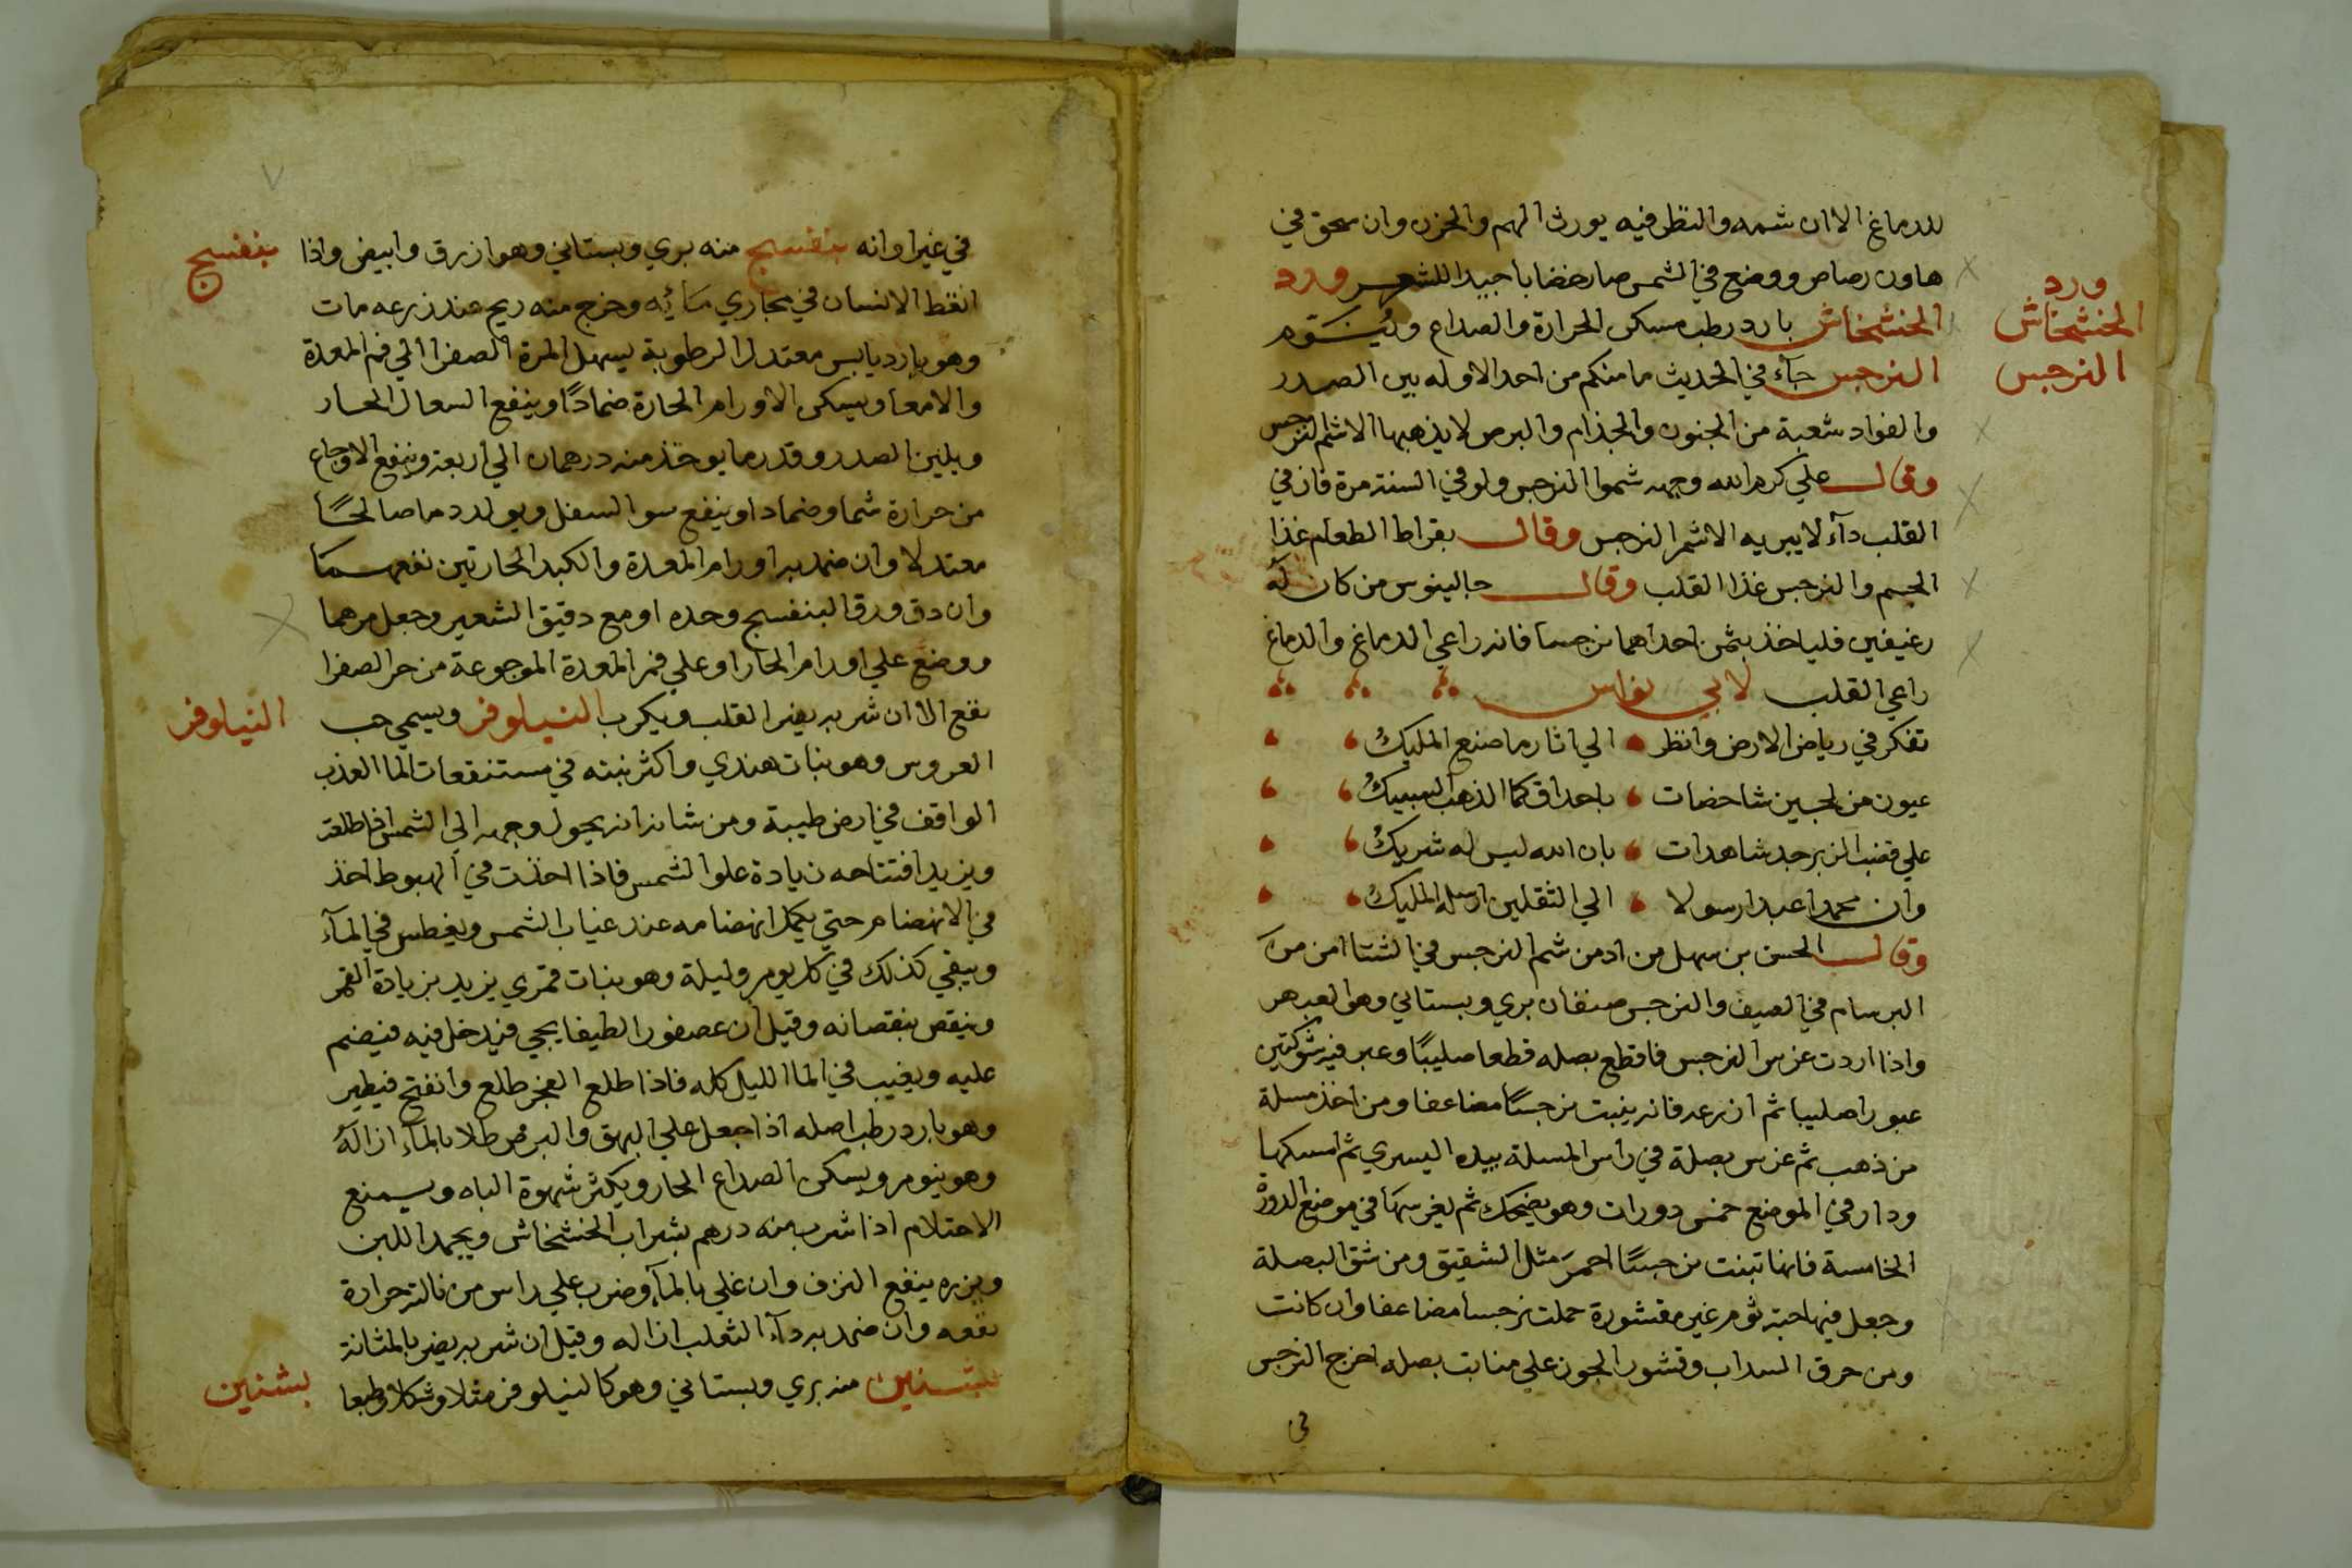 للدماغ الا ان شمه والنظر فيه يورث الهم والحزن وان سحق في
هاون رصاص ووضع في الشمس صار خضابا جيدا للشعر ورد
ورد
الخشخاش بارد رطب مسكن الحرارة والصداع ويُنَوّم
الخشخاش
النرجس جآء في الحديث ما منكم من احد الا وله بين الصدر
النرجس
والفواد شعبة من الجنون والجذام والبرص لا يذهبها الا شم النرجس
وقال علي كرم الله وجهه شموا النرجس ولو في السنة مرة فان في
القلب دآء لا يبريه الا شم النرجس وقال بقراط الطعام غذا
الجسم والنرجس غذا القلب وقال جالينوس من كان له
رغيفين فلياخذ بثمن احداهما نرجسا فانه راعي الدماغ والدماغ
راعي القلب لابي نواس
تفكر في رياض الارض وانظر الي اثار ما صنع المليكُ
عيون من لجين شاخصات باحداق كما الذهب السبيكُ
علي قضب الزبرجد شاهدات بان الله ليس له شريكُ
وان محمدا عبدا رسولا الي الثقلين ارسله المليكُ
وقال الحسن بن سهل من ادمن شم النرجس في الشتا امن من
البرسام في الصيف والنرجس صنفان بري وبستاني وهو العبهر
واذا اردت غرس النرجس فاقطع بصله قطعا صليبًا وعبر فيه شوكتين
عبورا صليبا ثم ازرعه فانه ينبت نرجسًا مضاعفا ومن اخذ مسلة
من ذهب ثم غرس بصلة في راس المسلة بيده اليسري ثم امسكها
ودار في الموضع خمس دورات وهو يضحك ثم يغرسها في موضع الدورة
الخامسة فانها تنبت نرجسًا احمرَ مثل الشقيق ومن شق البصلة
وجعل فيها حبة ثوم غير مقشورة حملت نرجسا مضاعفا وان كانت
ومن حرق السداب وقشور الجوز علي منابت بصله اخرج النرجس
في
٧
في غير اوانه بنفسج منه بري وبستاني وهو ازرق وابيض واذا
بنفسج
الانسان في مجاري مآئه وخرج منه ريح عند زرعه مات
وهو بارد يابس معتدل الرطوبة يسهل المرة الصفرا الي فم المعدة
والامعا ويسكن الاورام الحارة ضمادًا وينفع السعال الحار
ويلين الصدر وقدر ما يوخذ منه درهمان الي اربعة وينفع الاوجاع
من حرارة شما وضمادا وينفع سوا السفل ويولد دما صالحًا
معتدلا وان ضمد به اورام المعدة والكبد الحارتين نفعهما
وان دق ورق البنفسج وحده او مع دقيق الشعير وجعل مرهما
ووضع علي اورام الحار او علي فم المعدة الموجوعة من حر الصفرا
نفع الا ان شربه يضر القلب ويكرب النيلوفر ويسمي حب
النيلوفر
العروس وهو نبات هندي واكثر نبته في مستنقعات الما العذب
الواقف في ارض طيبة ومن شانه انه يحول وجهه الي الشمس اذا طلعت
ويزيد افتتاحه زيادة علو الشمس فاذا اخذت في الهبوط اخذ
في الانضمام حتي يكمل انضمامه عند غياب الشمس ويغطس في المآء
ويبقي كذلك في كل يوم وليلة وهو نبات قمري يزيد بزيادة القمر
وينقص بنقصانه وقيل ان عصفورا لطيفا يجي فيدخل فيه فينضم
عليه ويغيب في الما الليل كله فاذا طلع الفجر طلع وانفتح فيطير
وهو بارد رطب اصله اذا جعل علي البهق والبرص طلا بالمآء ازاله
وهو ينوم ويسكن الصداع الحار ويكثر شهوة الباه ويمنع
الاحتلام اذا شرب منه درهم بشراب الخشخاش ويجمد اللبن
وبزره ينفع النزف وان غلي بالمآء وضرب علي راس من نالته حرارة
نفعه وان ضمد به دآء الثعلب ازاله وقيل ان شربه يضر بالمثانة
بشنين منه بري وبستاني وهو كالنيلوفر مثلا وشكلا وطبعا
بشنين